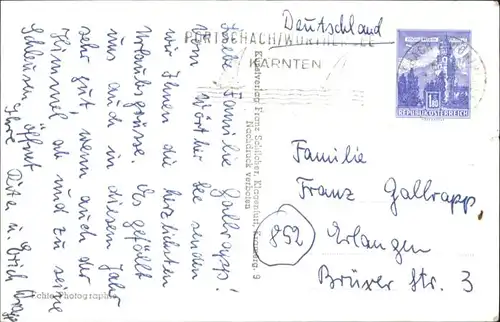 Deutschland
PÖRTSCHACH/WÖRTHERSEE
KÄRNTEN
1.80
REPUBLIK ÖSTERREICH
Liebe Familie Gallrapp!
Vom Wörther See senden
wir Ihnen die herzlichsten
Urlaubsgrüsse. Es gefällt
uns auch in diesem Jahr
sehr gut, wenn auch der
Himmel ab und zu seine
Schleusen öffnet.
Ihre Dita u. Erich
Kunstverlag Franz Schilcher, Klagenfurt, 9
Nachdruck verboten
Echte Photographie
Familie
Franz Gallrapp,
852
Erlangen
Brüxer Str. 3